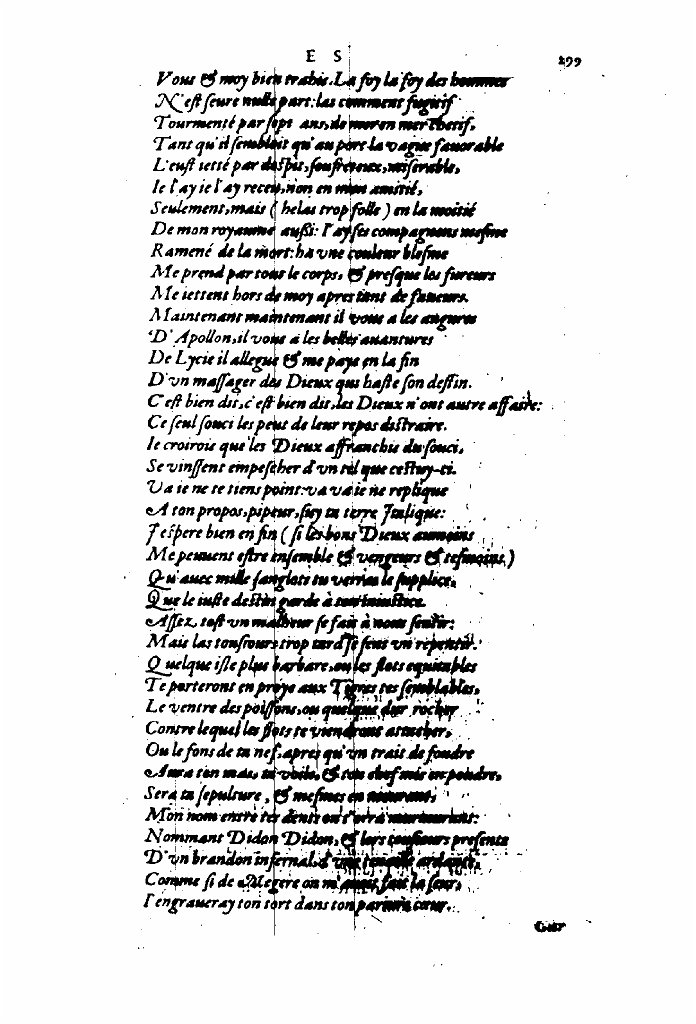 E S
299
Vous & moy bien trahis. La foy la foy des hommes
N'est seure nulle part: las comment fugitif
Tourmenté par sept ans, de mer en mer chetif,
Tant qu'il sembloit qu'au port la vague fauorable
L'eust ietté par despis, souffreteux, miserable,
Ie l'ay ie l'ay receu, non en mon amitié,
Seulement, mais ( helas trop folle ) en la moitié
De mon royaume außi: i'ay ses compagnons mesme
Ramené de la mort: ha vne couleur blesme
Me prend par tous le corps, & presque les fureurs
Me iettent hors de moy apres tant de faueurs.
Maintenant maintenant il vous a les augures
D'Apollon, il vous a les belles auantures
De Lycie il allegue & me paye en la fin
D'vn massager des Dieux qui haste son destin.
C'est bien dit, c'est bien dit, les Dieux n'ont autre affaire:
Ce seul souci les peut de leur repos distraire.
Ie croirois que les Dieux affranchis du souci,
Se vinssent empescher d'vn tel que cestuy-ci.
Va ie ne te tiens point: va va ie ne replique
A ton propos, pipeur, suy ta terre Italique:
I'espere bien en fin ( si les bons Dieux aumoins
Me peuuent estre ensemble & vengeurs & tesmoins.)
Qu'auec mille sanglots tu verras le supplice,
Que le iuste destin garde à ton iniustice.
Assez tost vn malheur se fait à nous sentir:
Mais las tousiours trop tard se sent vn repentir.
Quelque isle plus barbare, ou les flots equitables
Te porterons en proye aux Tigres tes semblables,
Le ventre des poissons, ou quelque dur rocher
Contre lequel les flots te viendront attacher,
Ou le fons de ta nef, apres qu'vn trait de foudre
Aura ton mas, ta voile, & ton chef mis en poudre,
Sera ta sepulture, & mesmes en mourant,
Mon nom entre tes dents on t'orra murmurant:
Nommant Didon Didon, & lors tousiours presente
D'vn brandon infernal, d'vne tenaille ardente,
Comme si de Megere on m'auoit fait la sœur,
I'engraueray ton tort dans ton pariure cœur.
Car